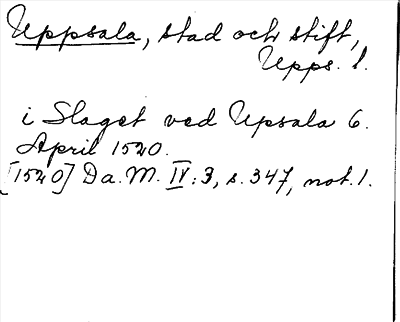 Uppsala, stad och stift,
Upps. l.
i Slaget ved Upsala 6.
April 1520.
[1520] Da. M. IV: 3, s. 347, not. 1.